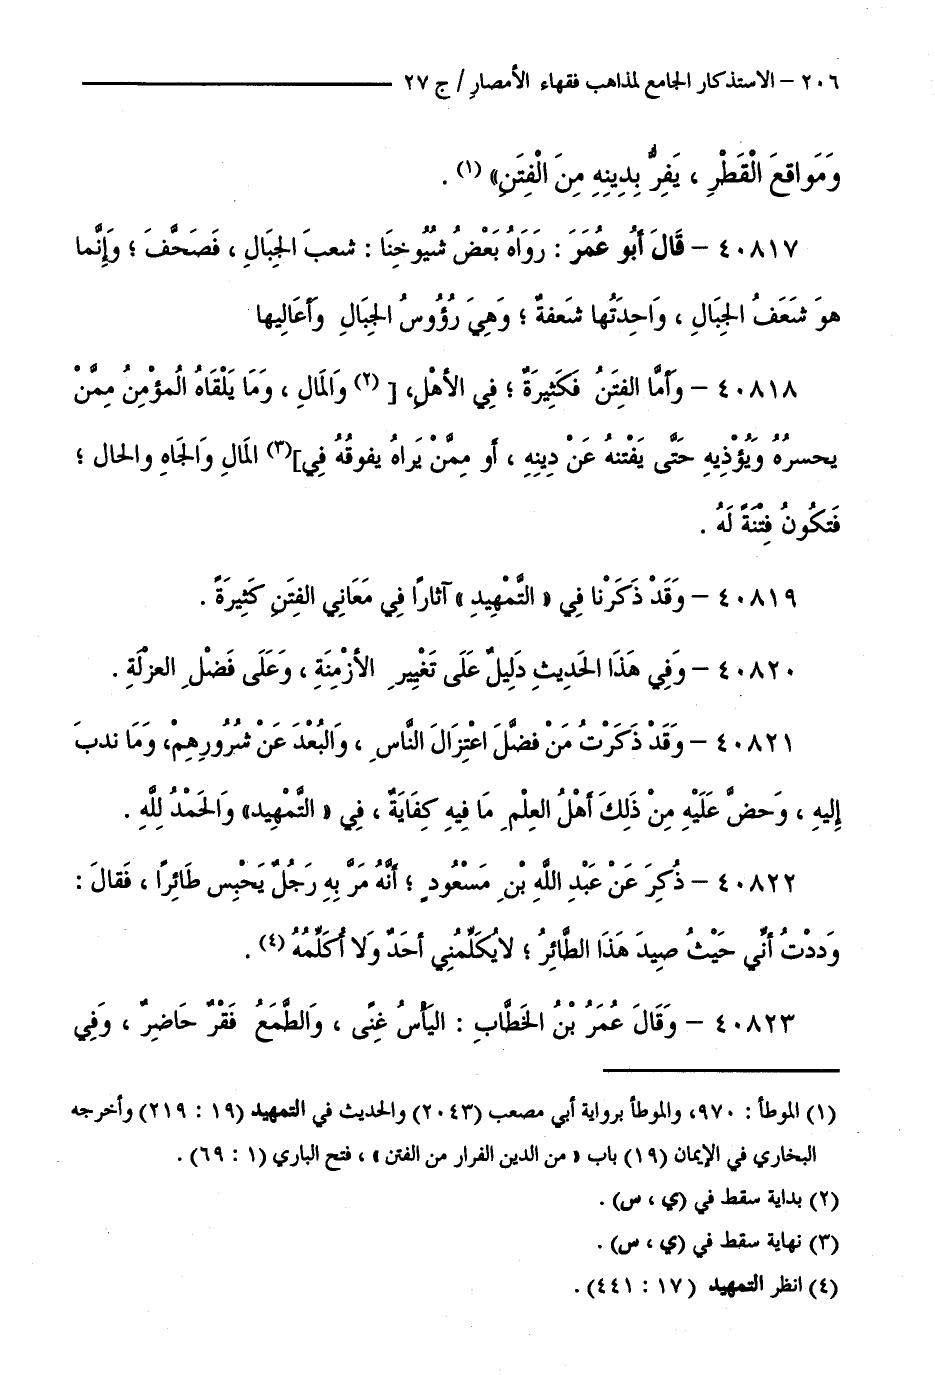 ٢٠٦ – الاستذكار الجامع لمذاهب فقهاء الأمصارِ / ج ٢٧
وَمَوَاقِعَ الْقَطْرِ ، يَفِرُّ بِدِينِهِ مِنَ الْفِتَنِ» (١) .
٤٠٨١٧ – قَالَ أَبُو عُمَرَ : رَوَاهُ بَعْضُ شُيُوخِنَا : شعبَ الجِبَالِ ، فَصَحَّفَ ؛ وَإِنَّما
هوَ شَعَفُ الجِبَالِ ، وَاحِدَتُها شعَفةٌ ؛ وَهِيَ رُؤُوسُ الجِبَالِ وَأَعَالِيها
٤٠٨١٨ – وَأَمَّا الفِتَنُ فَكَثِيرَةٌ ؛ فِي الأهْلِ، [ (٢) وَالمَالِ ، وَمَا يَلْقَاهُ المؤْمِنُ مِمَّنْ
يحسرُهُ وَيُؤْذِيهِ حَتَّى يَفْتنهُ عَنْ دِينِهِ ، أو مِمَّنْ يَراهُ يفوقُهُ فِي](٣) المَالِ وَالجَاهِ والحال ؛
فَتكُونُ فِتْنَةً لَهُ .
٤٠٨١٩ – وَقَدْ ذَكَرْنا فِي « التَّمْهِيدِ » آثارًا فِي مَعَانِي الفِتَنِ كَثِيرَةً .
٤٠٨٢٠ – وَفِي هَذَا الحَدِيثِ دَلِيلٌ عَلَى تَغْيِيرِ الأزْمِنَةِ ، وَعَلَى فَضْلِ العزلَةِ .
٤٠٨٢١ – وَقَدْ ذَكَرْتُ مَنْ فضَّلَ اعْتِزَالَ النَّاسِ ، وَالبُعْدَ عَنْ شُرُورِهِمْ، وَمَا ندبَ
إِليهِ ، وَحضَّ عَلَيْهِ مِنْ ذَلِكَ أَهْلُ العِلْمِ مَا فِيهِ كِفَايَةٌ ، فِي « التَّمْهِيد» وَالحَمْدُ لِلَّهِ .
٤٠٨٢٢ – ذُكِرَ عَنْ عَبْدِ اللَّهِ بْنِ مَسْعُودٍ ؛ أَنَّهُ مَرَّ بِهِ رَجُلٌ يَحْبِس طَائِرًا ، فَقالَ :
وَددْتُ أَنِّي حَيْثُ صِيدَ هَذَا الطَّائِرُ ؛ لايُكَلِّمُنِي أَحَدٌ وَلا أُكَلِّمُهُ (٤) .
٤٠٨٢٣ – وَقَالَ عُمَرُ بْنُ الخَطَّابِ : اليَأْسُ غِنًى ، وَالطَّمَعُ فَقْرٌ حَاضِرٌ ، وَفِي
(١) الموطأ : ٩٧٠، والموطأ برواية أبي مصعب (٢٠٤٣) والحديث في التمهيد (١٩ : ٢١٩) وأخرجه
البخاري في الإيمان (١٩) باب « من الدين الفرار من الفتن » ، فتح الباري (١ : ٦٩) .
(٢) بداية سقط في (ي ، س) .
(٣) نهاية سقط في (ي ، س) .
(٤) انظر التمهيد (١٧ : ٤٤١) .